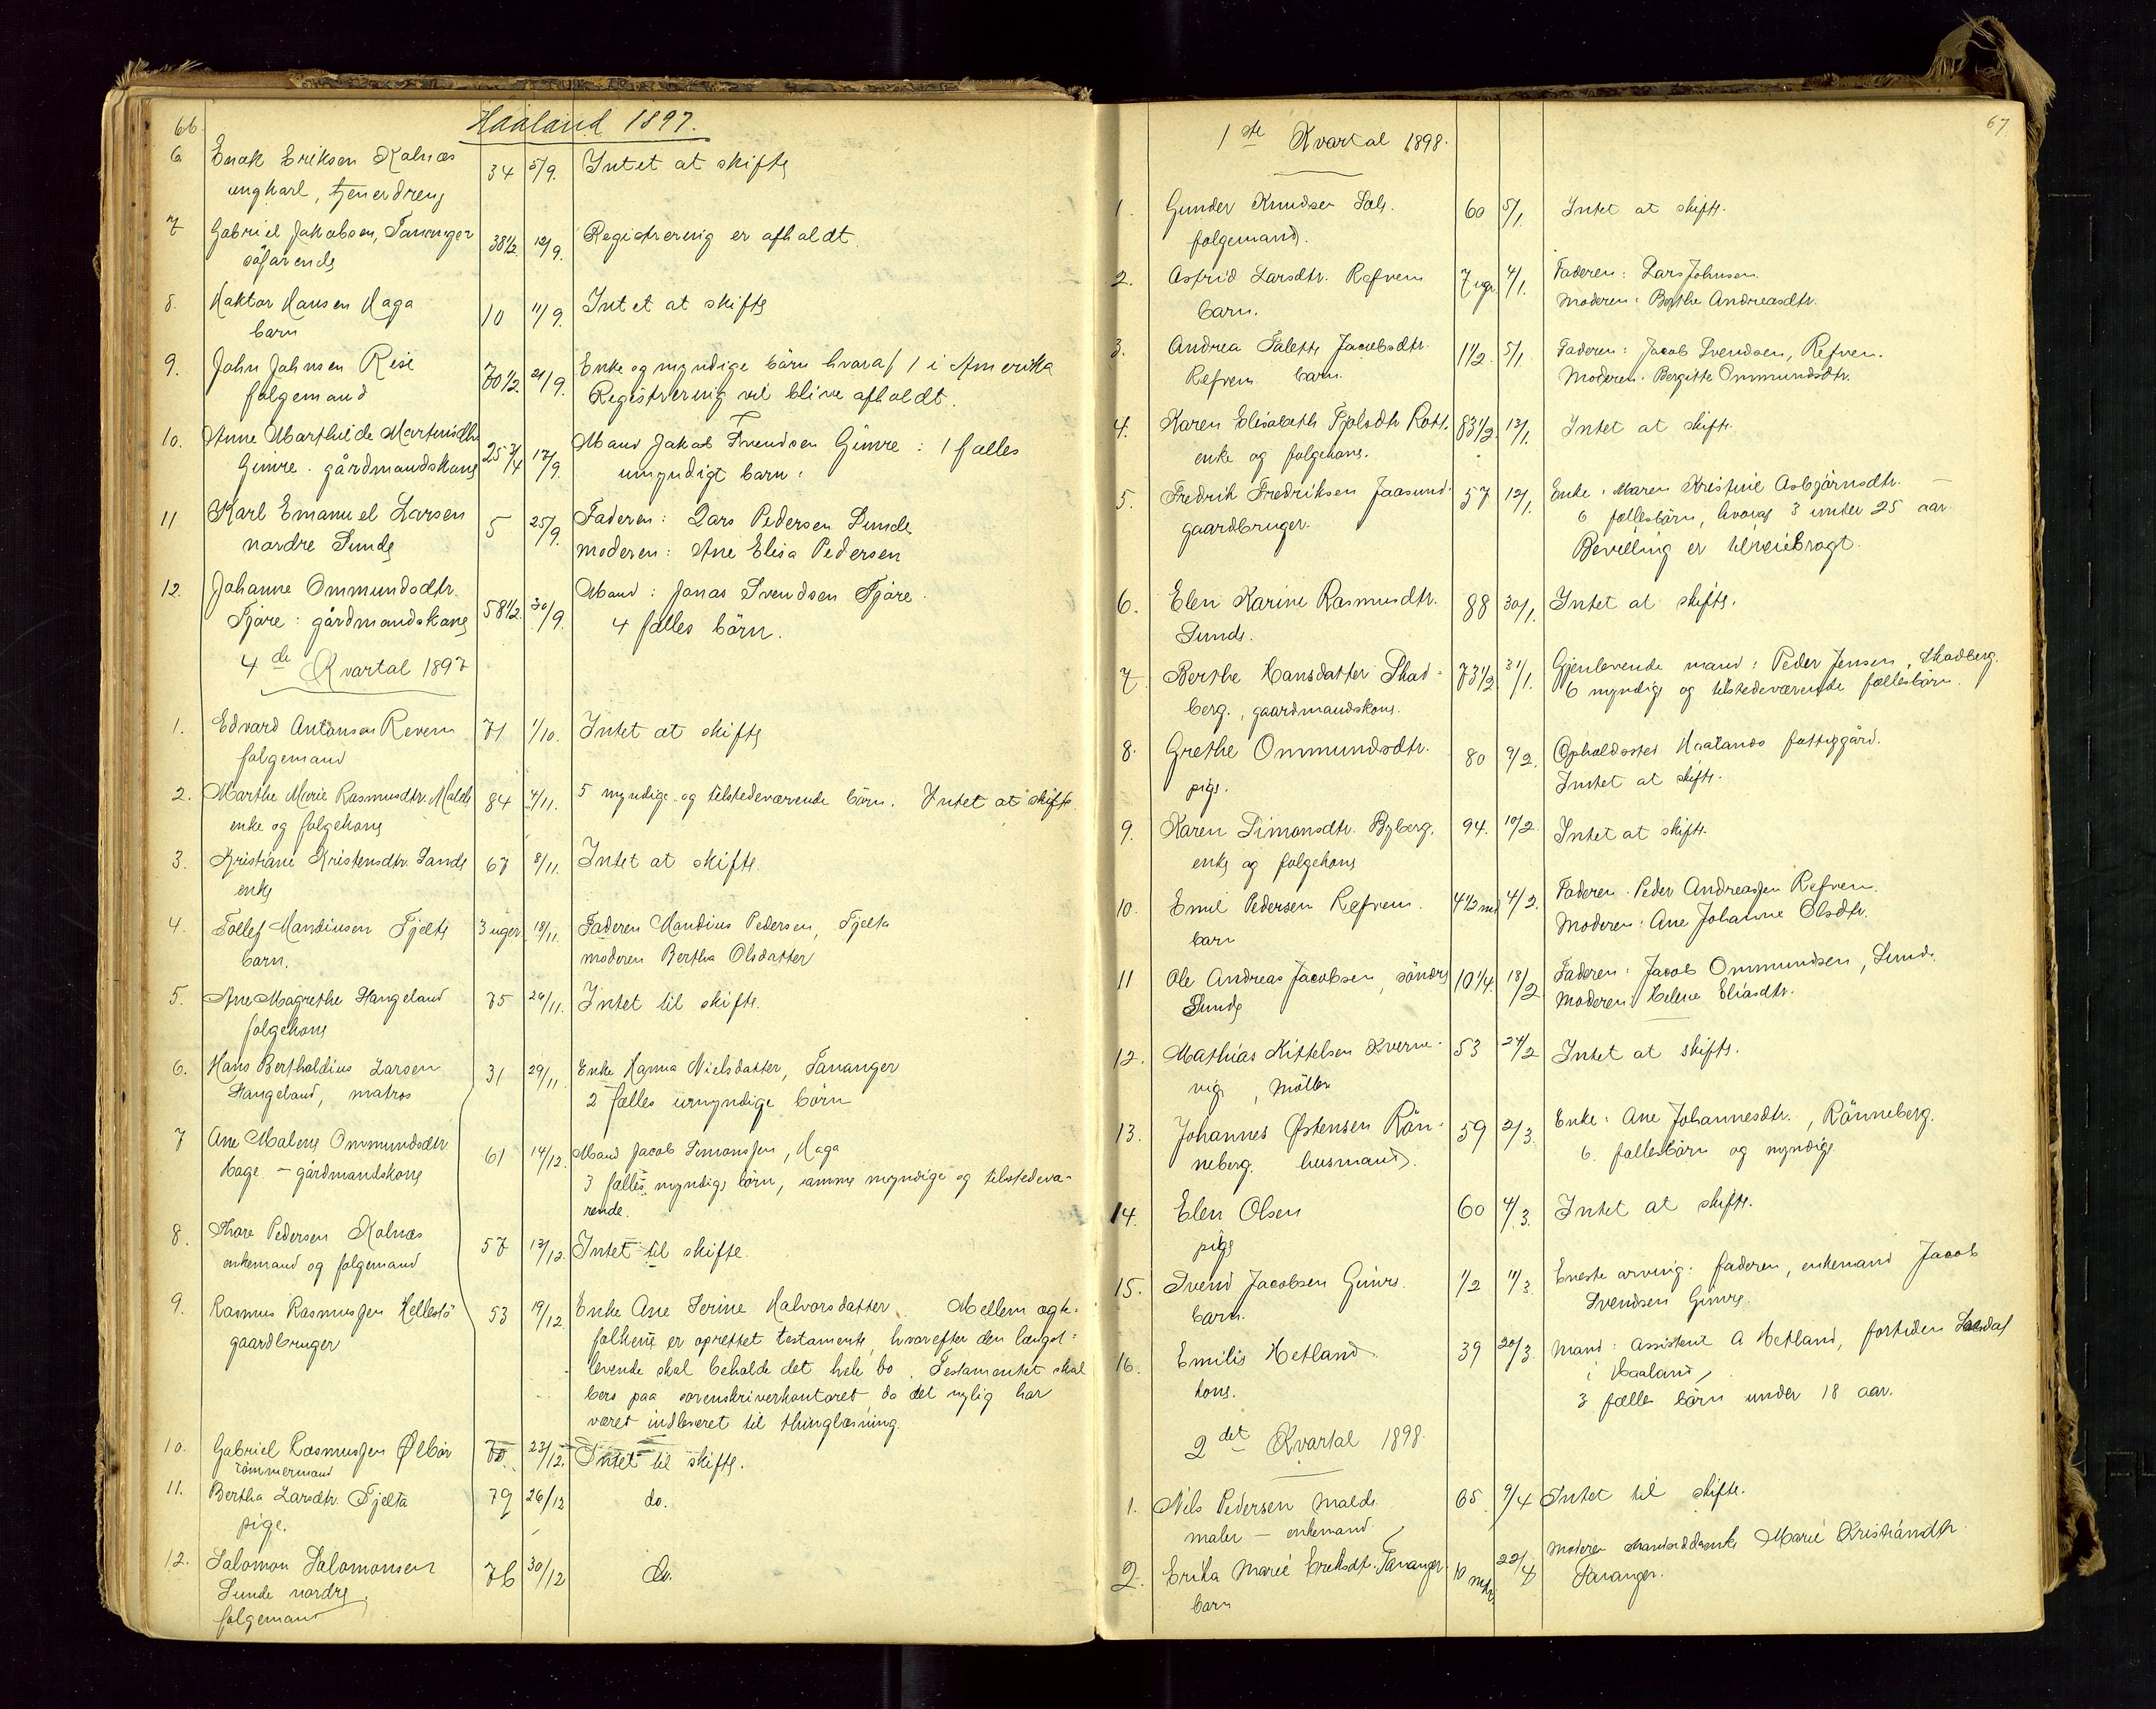 66.
Haaland 1897.
6 Enok Eriksen Kalnæs 34 5/9. Intet at skifte
ungkarl, tjenerdreng
7 Gabriel Jakobsen, Tananger 38 1/2 12/9. Registrering er afholdt.
söfarende
8. Haktor Hansen Haga 10 11/9. Intet at skifte
barn
9. John Johnsen Risa 70 1/2 21/9. Enke og myndige börn hvoraf 1 i Amerika
folgemand Registrering vil blive afholdt.
10. Anne Marthilde Martinsdtr 25 3/4 17/9. Mand Jakob Svendsen Gimre : 1 fælles
Gimre. gårdmandskone umyndigt barn.
11 Karl Emanuel Larsen 5 25/9. Faderen: Lars Pedersen Sunde
nordre Sunde moderen: Ane Elisa Pedersen
12. Johanne Ommundsdtr. 58 1/2 30/9. Mand: Jonas Svendsen Tjöre.
Tjöre: gårdmandskone 4 fælles börn.
4de Kvartal 1897
1. Edvard Antonsen Revem 71 1/10. Intet at skifte
folgemand
2. Marthe Marie Rasmusdtr. Malde 84 4/11. 5 myndige og tilstedeværende börn. Intet at skifte
enke og folgekone
3. Kristiane Kristensdtr. Sande 67 8/11. Intet at skifte.
enke
4. Tollef Mandiusen Tjelta 3 uger 18/11. Faderen Mandius Pedersen, Tjelta
barn. moderen Bertha Olsdatter
5. Ane Magrethe Hangeland 75 26/11. Intet til skifte.
folgekone
6. Hans Bertholdius Larsen 31 29/11. Enke Hanna Nielsdatter, Tananger
Hangeland, matros 2 fælles umyndige börn
7 Ane Malene Ommundsdtr 61 14/12. Mand Jacob Simonsen, Haga
Hage - gårdmandskone 3 fælles myndige börn, samme myndige og tilstedevæ-
rende.
8. Thore Pedersen Kalnæs 57 13/12. Intet til skifte.
enkemand og folgemand
9. Rasmus Rasmussen Hellestö 53 19/12 Enke Ane Serine Halvorsdatter. Mellem ægte-
gaardbruger folkene er oprettet testamente, hvorefter den længst-
levende skal beholde det hele bo. Testamentet skal
bero paa sorenskriverkontoret, da det nylig har
været indleveret til thinglæsning.
10. Gabriel Rasmussen Ölbör 70. 23/12. Intet til skifte.
tömmermand
11. Bertha Larsdtr. Tjelta 79 26/12 do.
pige.
12. Salomon Salomonsen 76 30/12 do.
Sunde nordre.
folgemand
67
1ste Kvartal 1898.
1. Gunder Knudsen Sola. 60 5/1. Intet at skifte.
folgemand.
2. Astrid Larsdtr. Refvem 7 ugr. 4/1. Faderen: Lars Johnsen.
barn. Moderen: Berthe Andreasdtr.
3. Andrea Salette Jacobsdtr. 1 1/2. 5/1. Faderen: Jacob Svendsen, Refven.
Refvem barn. Moderen: Bergitte Ommundsdtr.
4. Karen Elisabeth Tjölsdtr Rott. 83 1/2. 12/1. Intet at skifte.
enke og folgekone.
5. Fredrik Fredriksen Jaasund 57 12/1. Enke: Maren Kristine Asbjörnsdtr.
gaardbruger. 6 fællesbörn, hvoraf 3 under 25 aar.
Bevilling er tilveiebragt.
6. Elen Karine Rasmusdtr. 88 30/1. Intet at skifte.
Sunde.
7. Berthe Hansdatter Skad- 73 1/2 31/1. Gjenlevende mand: Peder Jensen, Skadberg.
berg., gaardmandskone. 6 myndige og tilstedeværende fællesbörn.
8. Grethe Ommundsdtr. 80 9/2. Opholdssted Haalands fattiggård.
pige. Intet at skifte.
9. Karen Simonsdtr. Byberg. 94. 10/2. Intet at skifte.
enke og folgekone
10. Emil Pedersen Refvem. 4 1/2 md 4/2. Faderen: Peder Andreassen Refvem.
barn Moderen: Ane Johanne Olsdtr.
11 Ole Andreas Jacobsen, söndre 10 1/4 18/2 Faderen: Jacob Ommundsen, Sunde.
Sunde Moderen: Helene Eliasdtr.
12. Mathias Kittelsen Kverne- 53 24/2 Intet at skifte.
vig, möller
13. Johannes Östensen Rön- 59 2/3. Enke: Ane Johannesdtr., Rönneberg.
neberg. husmand. 6 fællesbörn og myndige
14. Elen Olsen 60 4/3. Intet at skifte.
pige
15. Svend Jacobsen Gimre. 1/2 11/3 Eneste arving: faderen, enkemand Jacob
barn. Svendsen Gimre.
16. Emilie Hetland 39 20/3. Mand: assistent A Hetland, fortiden
kone. i Haaland,
3 fælles börn under 18 aar.
2det Kvartal 1898.
1. Nils Pedersen Malde 65. 9/4 Intet til skifte.
maler - enkemand.
2. Erika Marie Eriksdtr. Tananger. 10 mdr. 22/4 Moderen Marie Kristiandtr
barn Tananger.